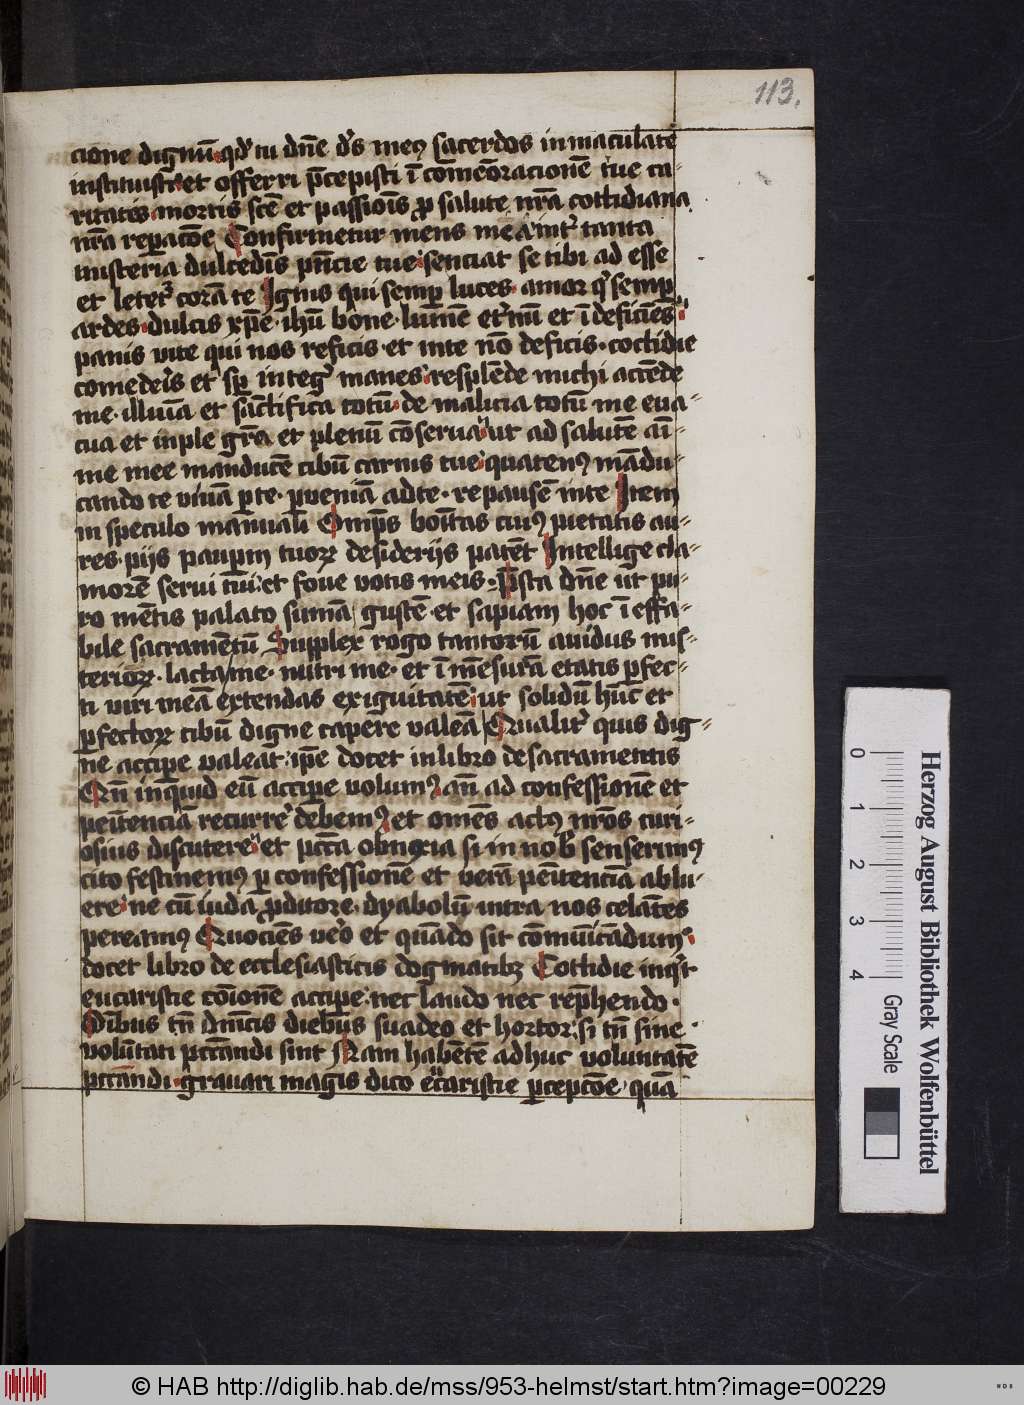 113.
cione dignū qd' tu dn̄e d's meꝰ sacerdos inmaculate
instituisti et offerri p̄cepisti ī com̄eoracionē tue ca-
ritatis mortis sc̄e et passiois̄ ꝓ salute nr̄a cottidiana
nr̄a repac̄oe Confirmetur mens mea int' tanta
misteria dulcedis̄ pn̄cie tue senciat se tibi ad esse
et letet' corā te Ignis qui semꝑ luces amor q' semꝑ
ardes dulcis xp̄e ihū bone lumē et'nū et ī deficiēs
panis vite qui nos reficis et inte nō deficis cottidie
comeder̄s et sꝑ integ' manes resplēde michi accēde
me illuīa et sāctifica totū de malicia totū me eua-
cua et inple gr̄a et plenū cōserua ut ad salutē aī-
me mee manducē cibū carnis tue quatenꝰ mādu-
cando te viuā ꝑte ꝑueniā adte repausē inte Item
in speculo manuali Omp̄s boītas cuiꝰ pietatis au-
res pijs paupꝝ tuoꝝ desiderijs patēt Intellige cla-
morē serui tui et foue votis meis p̄sta dn̄e ut pu-
ro mētis palato sumā gustē et sapiam hoc ī effa-
bile sacramētū Supplex rogo tantorū auidus mis-
terioꝝ lacta me nutri me et ī mēsurā etatis ꝑfec-
ti viri meā extendas exiguitatē ut solidū hūc et
ꝑfectoꝝ cibū digne capere valeā Qualit' quis dig-
ne accipe valeat ip̄e docet in libro de sacramentis
Qn̄ inquid eū accipe volumꝰ an̄ ad confessionē et
penitenciā recurre' debemꝰ et omēs actꝰ nr̄os curi-
osius discutere et pctā obnoxia si in nob' senserimꝰ
cito festinemꝰ ꝑ confessionē et verā penitenciā ablu-
ere ne cū iuda ꝓditore dyabolū intra nos celātes
pereamꝰ Quociēs v'o et quādo sit comunicādum
docet libro de ecclesiasticis dogmatibꝫ Cottidie inq't
eucaristie coīonē accipe nec laudo nec rep̄hendo
Oībus tn̄ dn̄icis diebus suadeo et hortor si tn̄ sine
volūtati pccandi sint Nam habētē adhuc voluntatē
pccandi grauari magis dico eucaristie ꝑcepcōe quā
Herzog August Bibliothek Wolfenbüttel
0 1 2 3 4
Gray Scale
© HAB http://diglib.hab.de/mss/953-helmst/start.htm?image=00229